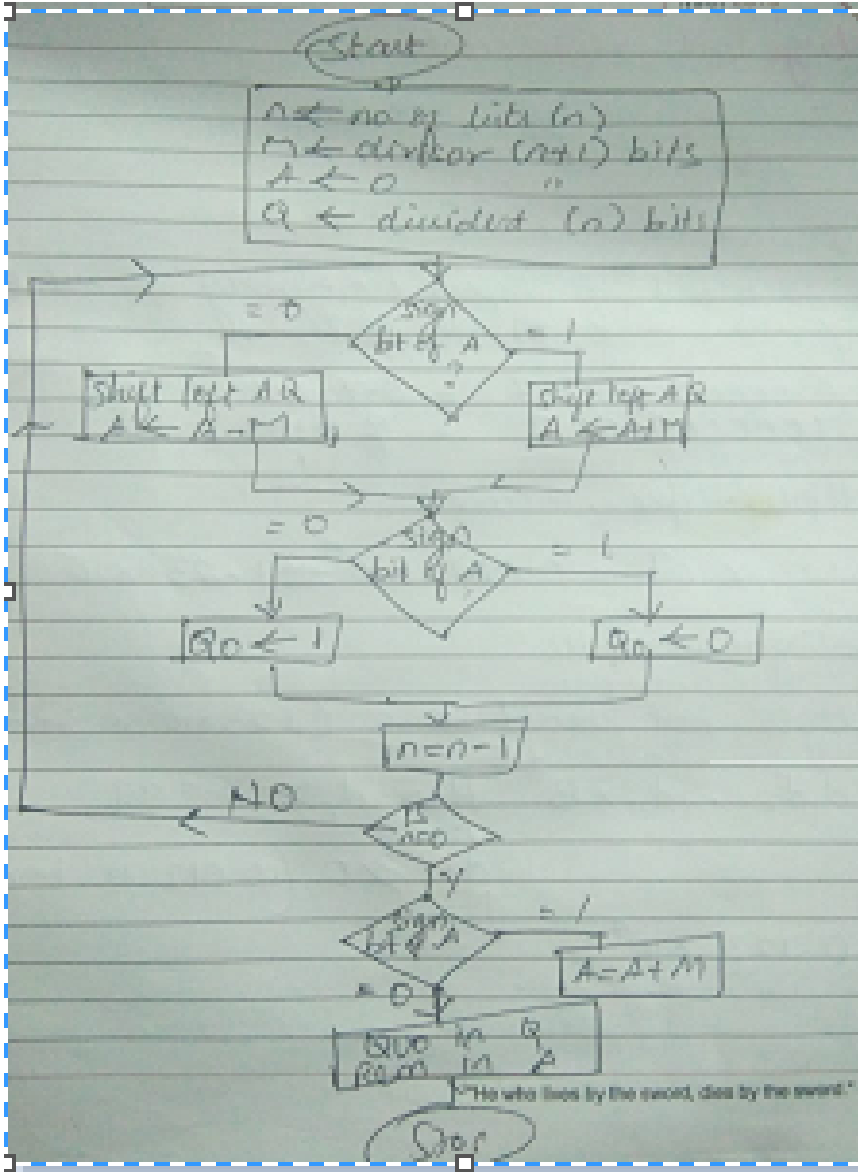 Start
n ← no of bits (n)
M ← divisor (n+1) bits
A ← 0 "
Q ← divident (n) bits
sign
bit of A
?
= 0
= 1
Shift left AQ
A ← A - M
shift left AQ
A ← A+M
sign
bit of A
= 0
= 1
Q0 ← 1
Q0 ← 0
n=n-1
Is
n=0
NO
Y
sign
bit of A
= 1
A=A+M
= 0
QUO in Q
Rem in A
"He who lives by the sword, dies by the sword."
Stop